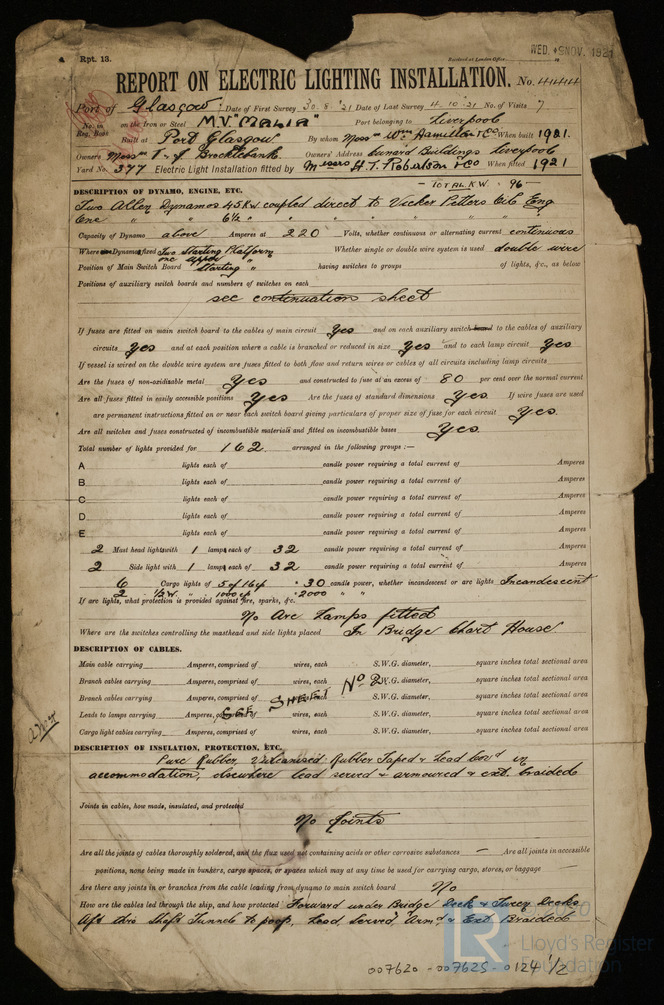 Rpt. 13.
Received at London Office
WED. 9 NOV. 1921
REPORT ON ELECTRIC LIGHTING INSTALLATION. No. 4444
Port of Glasgow Date of First Survey 30.8.21 Date of Last Survey 4.10.21 No. of Visits 7
No. in Reg. Book on the Iron or Steel M.V. "MALIA" Port belonging to Liverpool
Built at Port Glasgow By whom Messrs Wm Hamilton & Co When built 1921.
Owners Messrs T. & J. Brocklebank Owners' Address Cunard Buildings Liverpool
Yard No. 377 Electric Light Installation fitted by Messrs H. T. Robertson & Co When fitted 1921
DESCRIPTION OF DYNAMO, ENGINE, ETC. — TOTAL KW. 96 —
Two Allen Dynamos 45 KW coupled direct to Vicker Petters Oil Eng
One " " 6½ " " " " " " " "
Capacity of Dynamo above Amperes at 220 Volts, whether continuous or alternating current continuous
Where Dynamo fixed Two Starting Platform one upper " Whether single or double wire system is used double wire
Position of Main Switch Board Starting " having switches to groups of lights, &c., as below
Positions of auxiliary switch boards and numbers of switches on each
see continuation sheet
If fuses are fitted on main switch board to the cables of main circuit Yes and on each auxiliary switch board to the cables of auxiliary
circuits Yes and at each position where a cable is branched or reduced in size Yes and to each lamp circuit Yes
If vessel is wired on the double wire system are fuses fitted to both flow and return wires or cables of all circuits including lamp circuits
Are the fuses of non-oxidizable metal Yes and constructed to fuse at an excess of 80 per cent over the normal current
Are all fuses fitted in easily accessible positions Yes Are the fuses of standard dimensions Yes If wire fuses are used
are permanent instructions fitted on or near each switch board giving particulars of proper size of fuse for each circuit Yes
Are all switches and fuses constructed of incombustible materials and fitted on incombustible bases Yes
Total number of lights provided for 162 arranged in the following groups :—
A lights each of candle power requiring a total current of Amperes
B lights each of candle power requiring a total current of Amperes
C lights each of candle power requiring a total current of Amperes
D lights each of candle power requiring a total current of Amperes
E lights each of candle power requiring a total current of Amperes
2 Mast head light with 1 lamp each of 32 candle power requiring a total current of Amperes
2 Side light with 1 lamp each of 32 candle power requiring a total current of Amperes
6 Cargo lights of 5 of 16 cp 30 candle power, whether incandescent or arc lights Incandescent
2 ½W. " 1000 cp 2000 " "
If arc lights, what protection is provided against fire, sparks, &c.
No Arc Lamps fitted
Where are the switches controlling the masthead and side lights placed In Bridge Chart House
DESCRIPTION OF CABLES.
Main cable carrying Amperes, comprised of wires, each S.W.G. diameter, square inches total sectional area
Branch cables carrying Amperes, comprised of wires, each S.W.G. diameter, square inches total sectional area
Branch cables carrying Amperes, comprised of wires, each S.W.G. diameter, square inches total sectional area
Leads to lamps carrying Amperes, comprised of wires, each S.W.G. diameter, square inches total sectional area
Cargo light cables carrying Amperes, comprised of wires, each S.W.G. diameter, square inches total sectional area
SEE SHEET No 2
DESCRIPTION OF INSULATION, PROTECTION, ETC.
Pure Rubber, Vulcanised Rubber Taped & Lead Cov'd in
accommodation, elsewhere lead served & armoured & ext. braided
Joints in cables, how made, insulated, and protected
No Joints
Are all the joints of cables thoroughly soldered, and the flux used not containing acids or other corrosive substances — Are all joints in accessible
positions, none being made in bunkers, cargo spaces, or spaces which may at any time be used for carrying cargo, stores, or baggage —
Are there any joints in or branches from the cable leading from dynamo to main switch board No
How are the cables led through the ship, and how protected Forward under Bridge Deck & Tween Decks
Aft Via Shaft Tunnel to poop, Lead Served Arm'd & Ext. Braided
LR
Lloyd's Register
Foundation
007620 - 007625 - 0124 ½